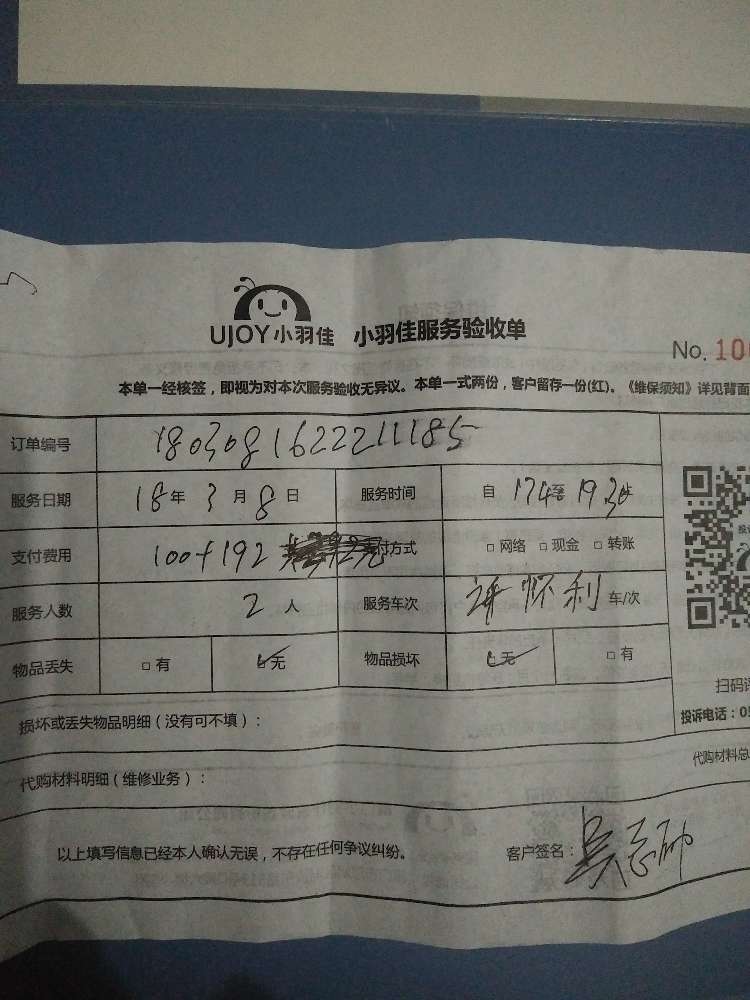 UJOY小羽佳 小羽佳服务验收单
No. 10
本单一经核签，即视为对本次服务验收无异议。本单一式两份，客户留存一份(红)。《维保须知》详见背面
订单编号 1803081622211185
服务日期 18年3月8日 服务时间 自 174至19.30止
支付费用 100+192 支付方式 □网络 □现金 □转账
服务人数 2人 服务车次 许怀利 车/次
物品丢失 □有 □无 物品损坏 □无 □有
扫码
损坏或丢失物品明细（没有可不填）： 投诉电话：05
代购材料明细（维修业务）： 代购材料总
以上填写信息已经本人确认无误，不存在任何争议纠纷。 客户签名：吴志